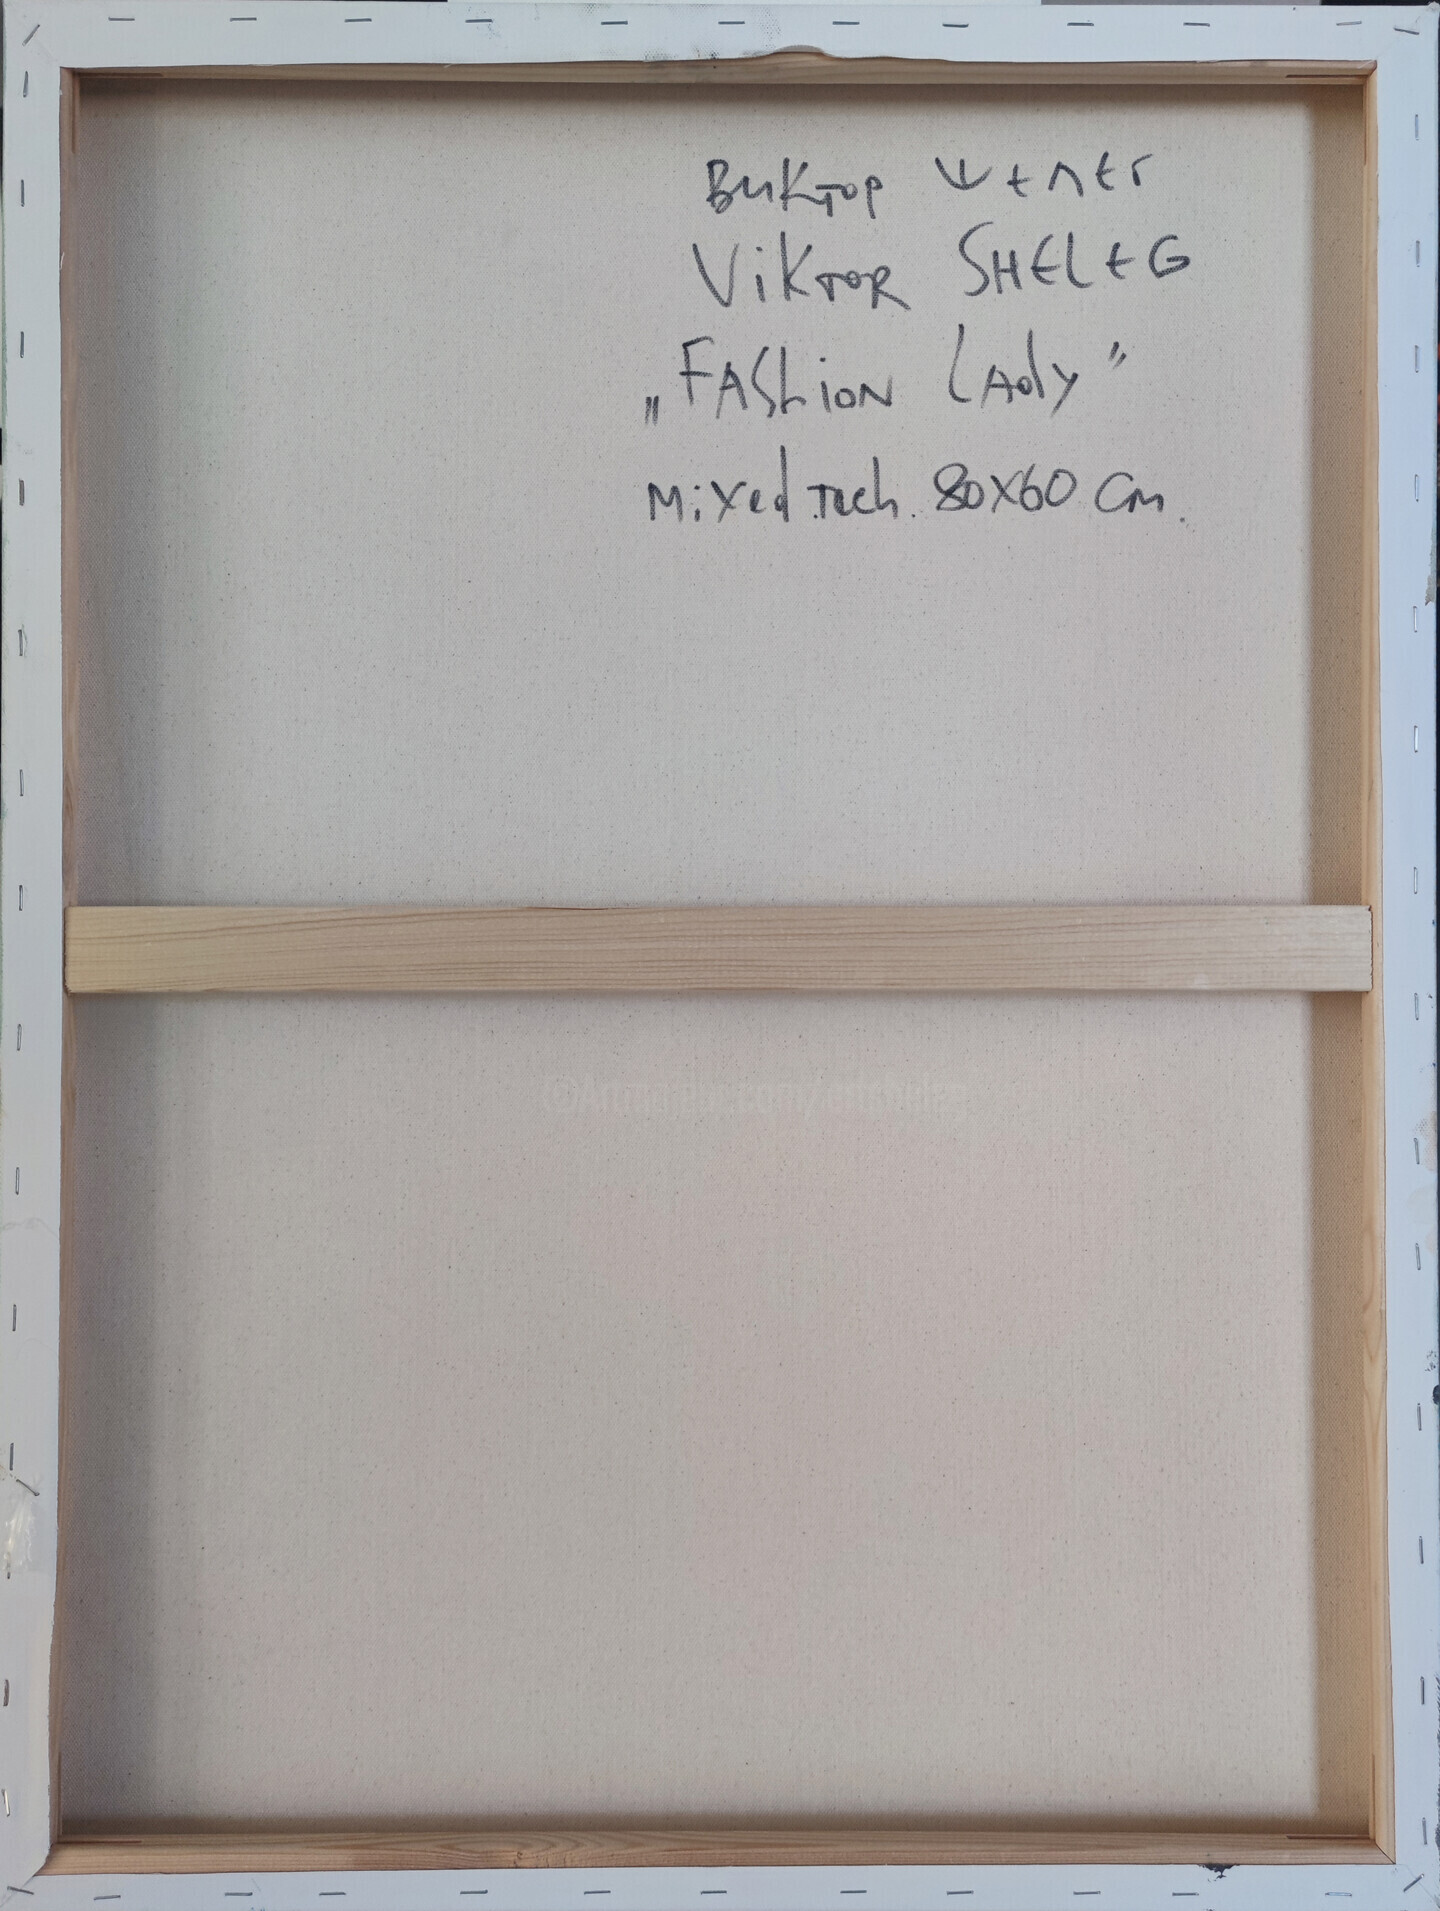 Виктор Шелег
Viktor SHELEG
„FAShion LAdy”
Mixed tech. 80x60 cm.